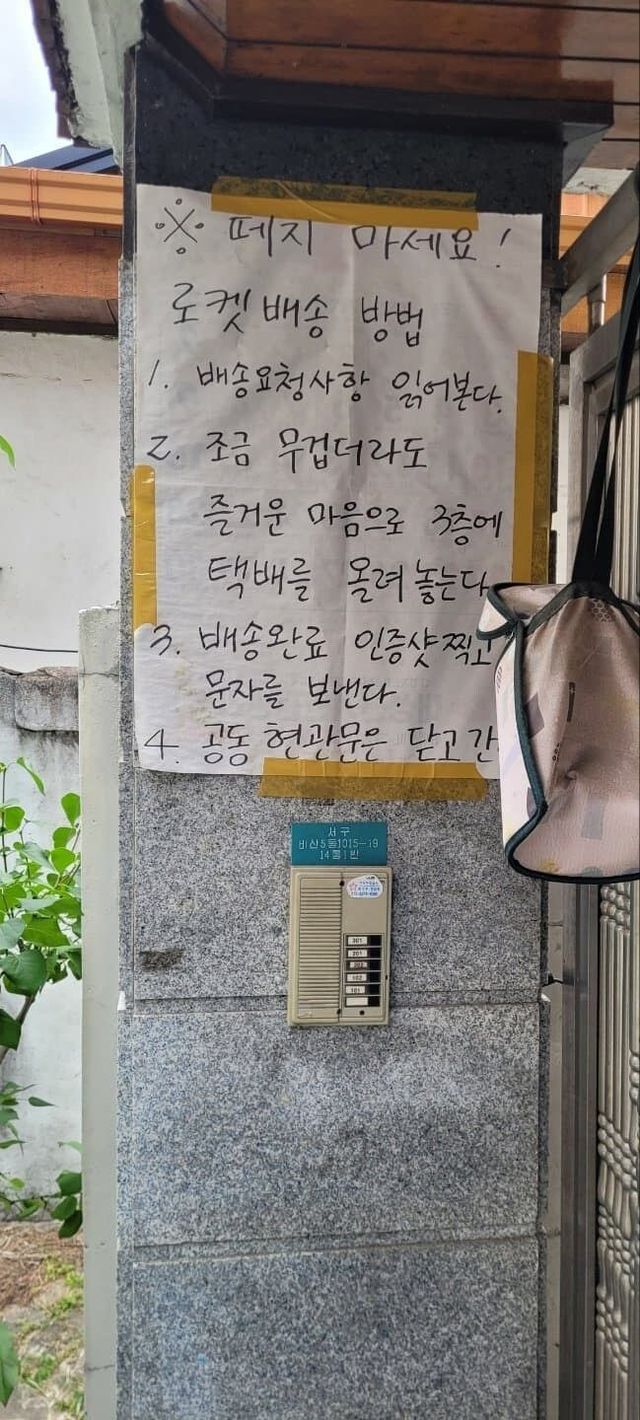 ※ 떼지 마세요!
로켓배송 방법
1. 배송요청사항 읽어본다.
2. 조금 무겁더라도
즐거운 마음으로 3층에
택배를 올려놓는다
3. 배송완료 인증샷찍고
문자를 보낸다.
4. 공동현관문은 닫고간
서구
비산5동1015-19
14통1반
301
201
202
102
101